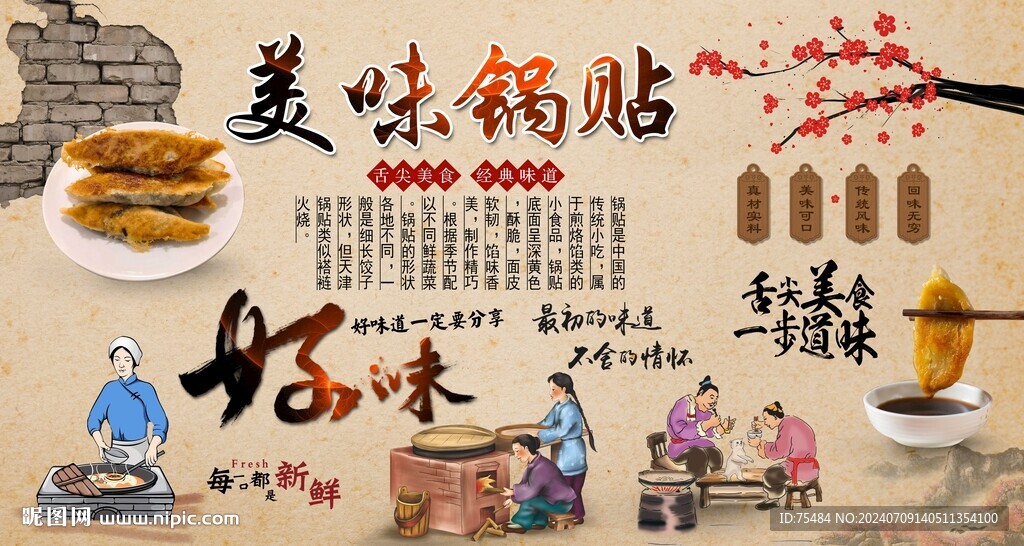 美味锅贴
舌尖美食 经典味道
锅贴是中国的
传统小吃,属
于煎烙馅类的
小食品,锅贴
底面呈深黄色
,酥脆,面皮
软韧,馅味香
美,制作精巧
。根据季节配
以不同鲜蔬菜
。锅贴的形状
各地不同,一
般是细长饺子
形状,但天津
锅贴类似褡裢
火烧。
真材实料
美味可口
传统风味
回味无穷
舌尖美食
一步道味
好味
好味道一定要分享
最初的味道
不舍的情怀
Fresh
每一口都是新鲜
昵图网 www.nipic.com
ID:75484 NO:20240709140511354100